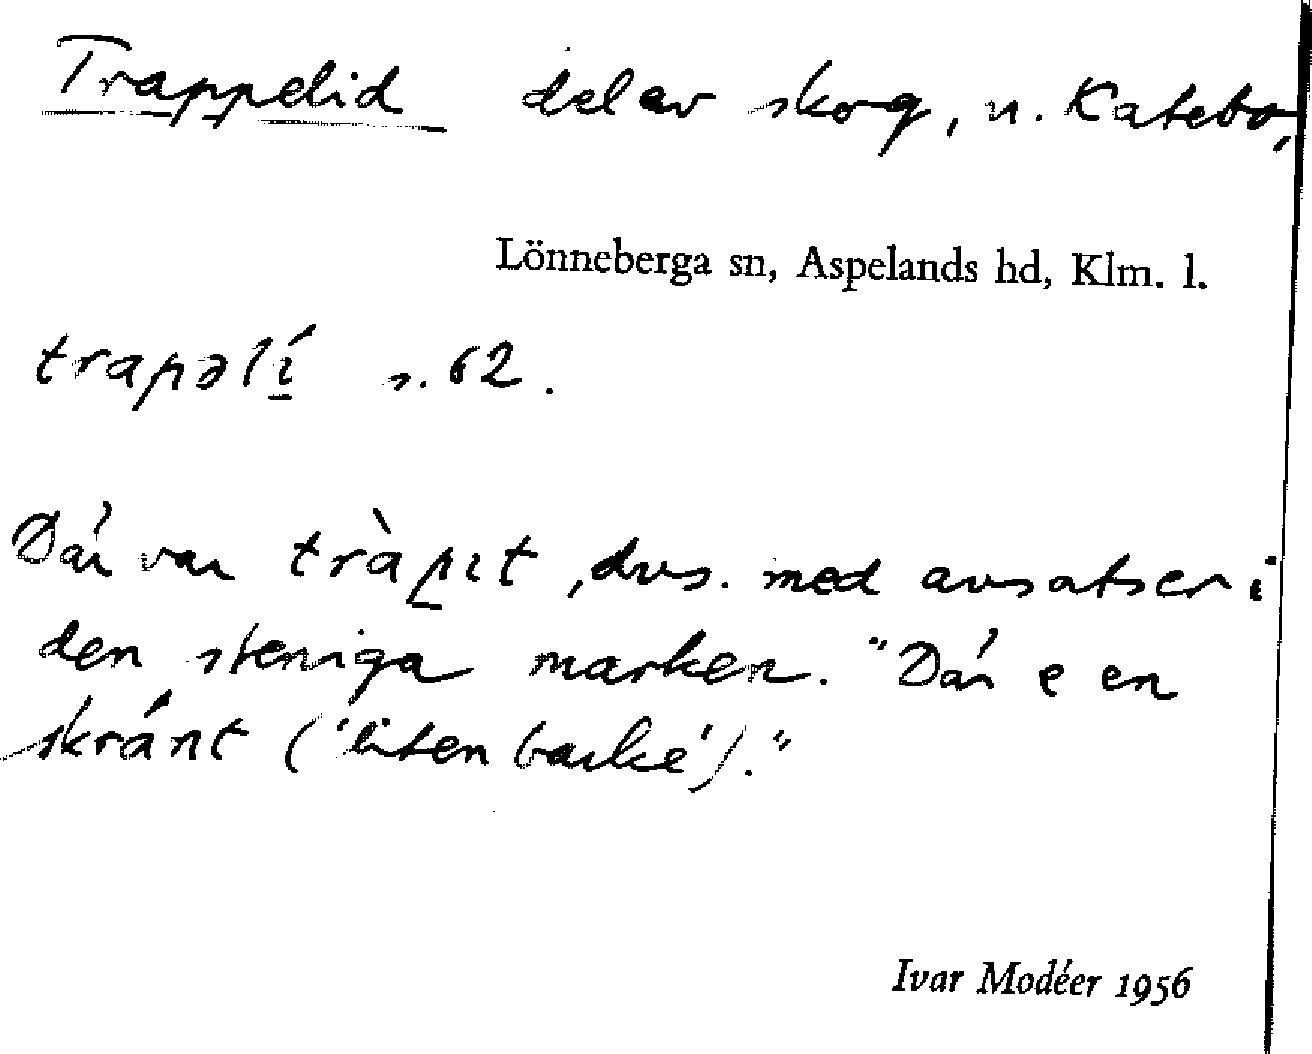 Trappelid del av skog, u. Katebo,
Lönneberga sn, Aspelands hd, Klm. l.
trapəlí s. 62.
Där var tràpıt, dvs. med avsatser i
den steniga marken. "Där e en
skránt ('liten backe')."
Ivar Modéer 1956